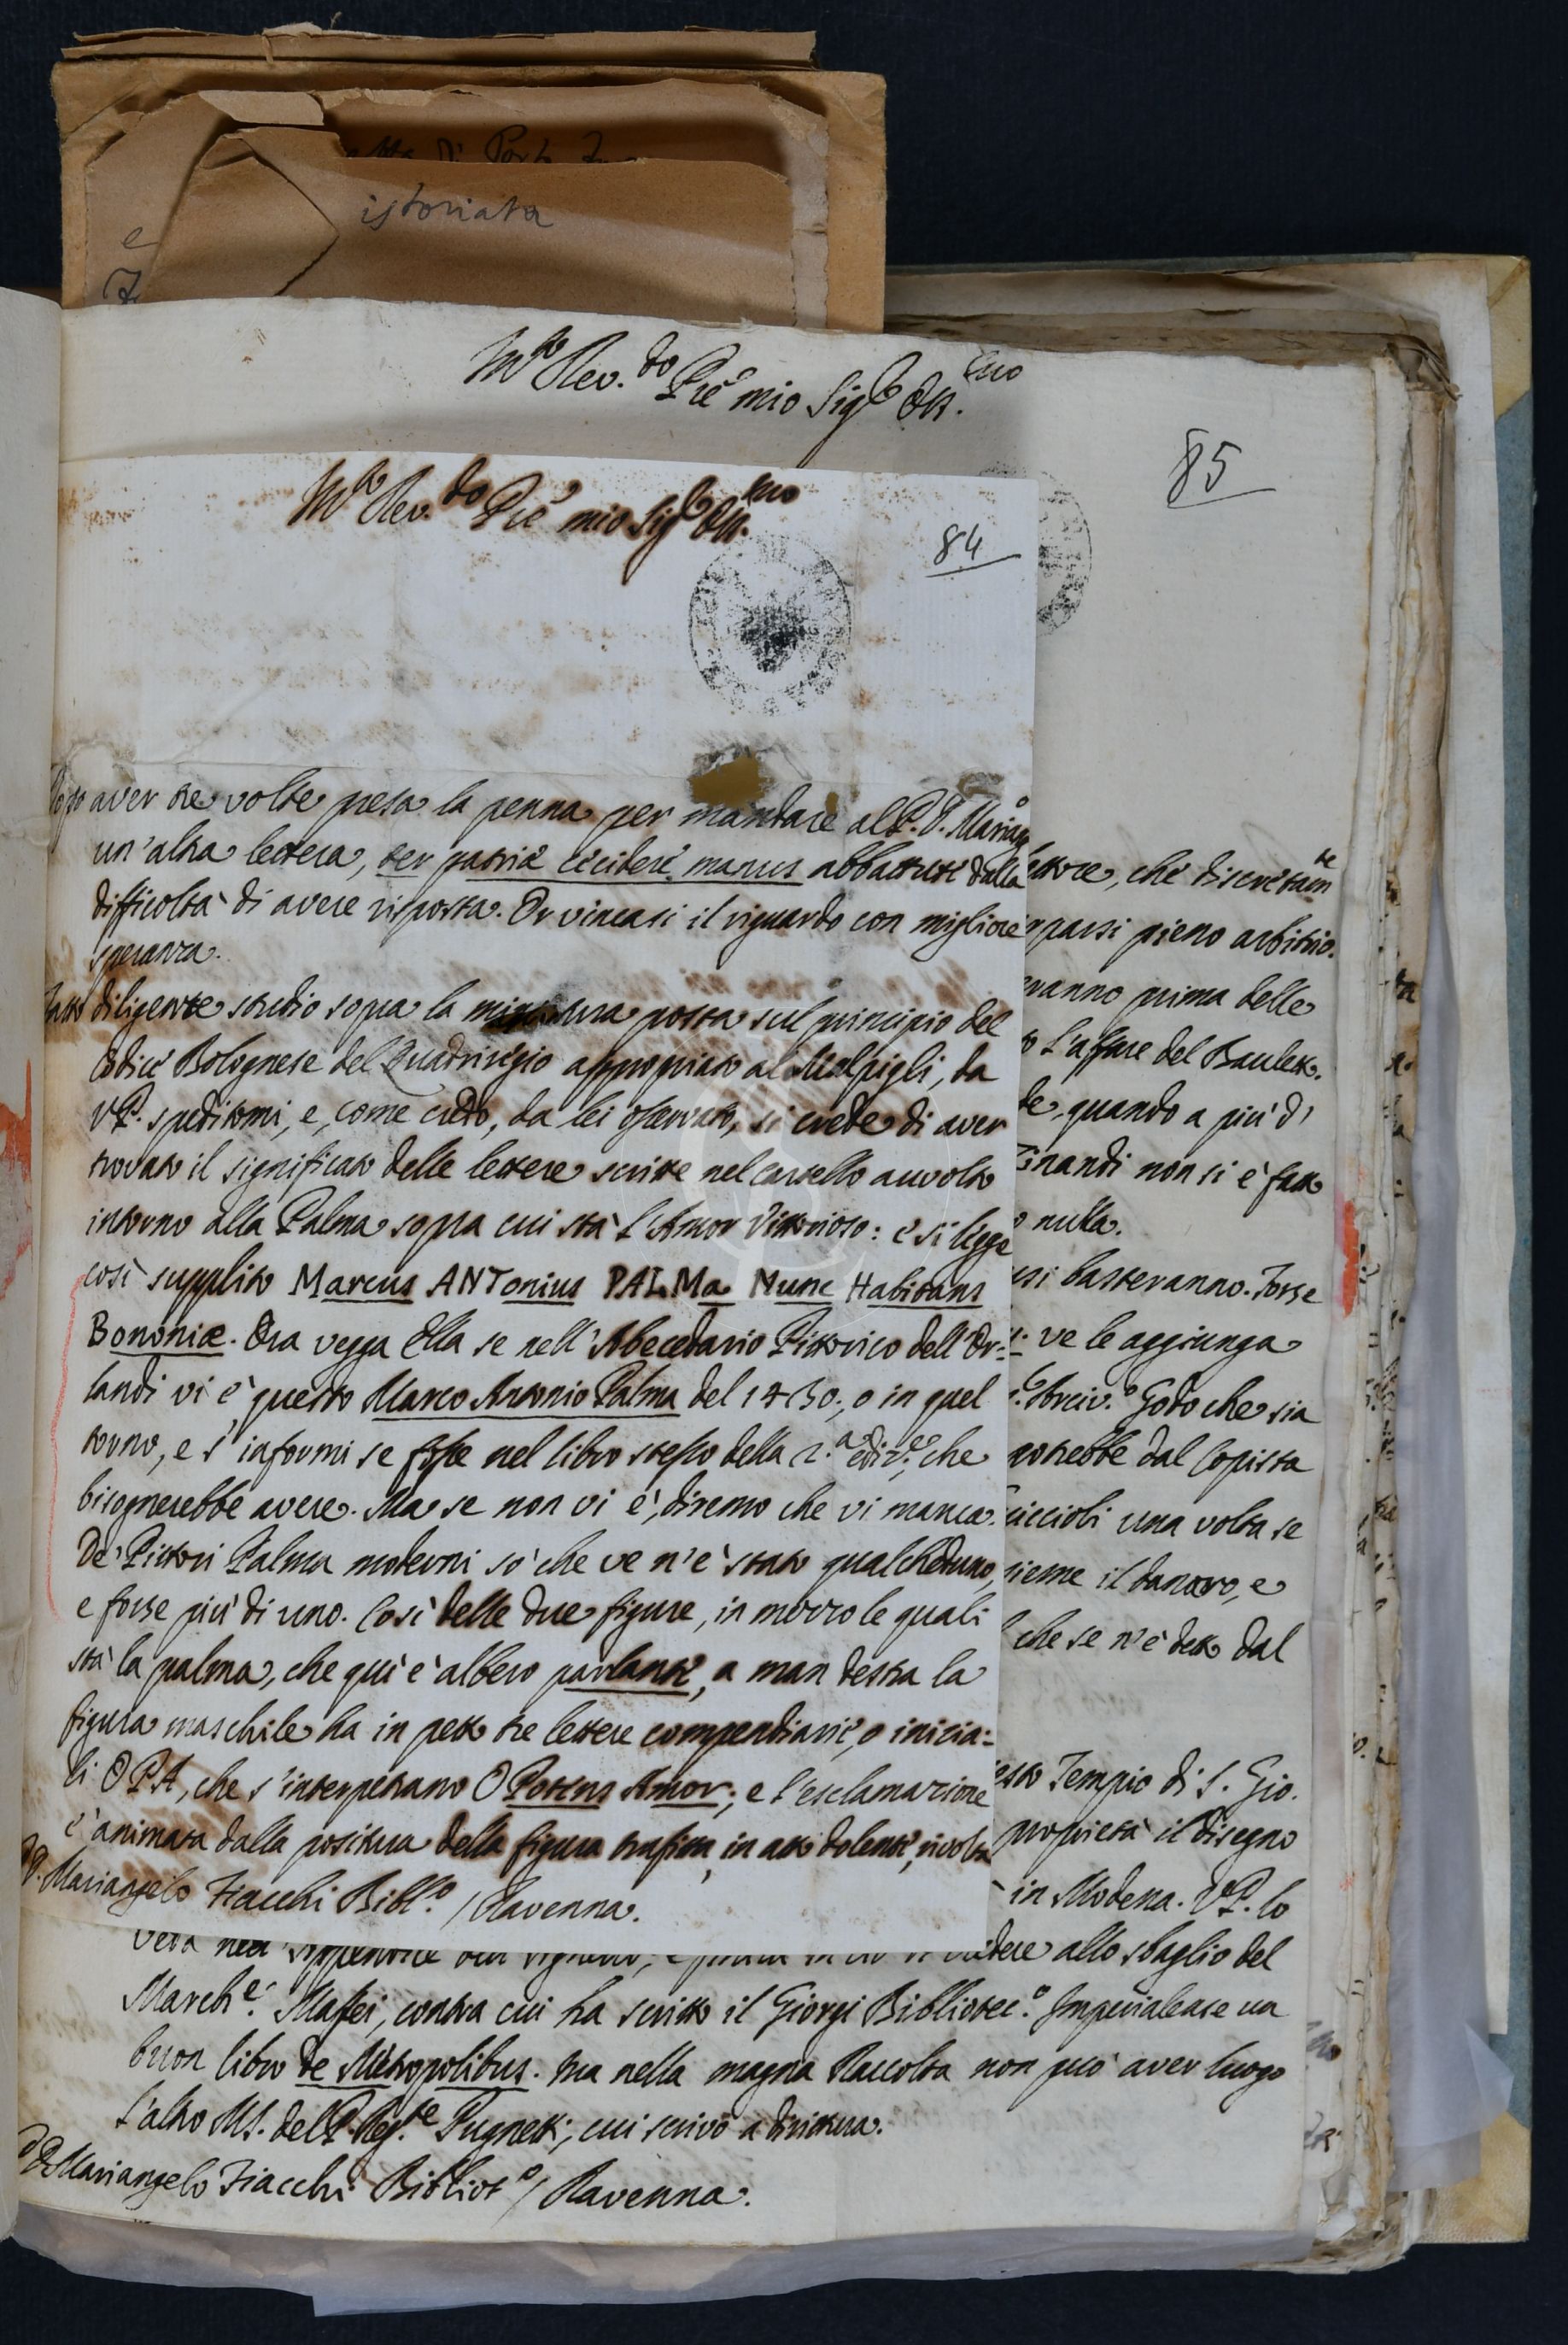 istoriata
e
M.to Rev.do Pre mio Sig.r Oss.mo
85
M.to Rev.do Pre mio Sig.r Oss.mo
84
Dopo aver tre volte presa la penna per mandare al P. D. Mariang.o
un'altra lettera, ter patriæ cecidere manus abbattute dalla
difficoltà di avere risposta. Or vincasi il riguardo con migliore
speranza.
Fatto diligente studio sopra la miniatura posta sul principio del
Codice Bolognese del Quadriregio appropriato al Malpigli, da
V.P. speditomi, e, come credo, da lei osservato, si crede di aver
trovato il significato delle lettere scritte nel cartello avvolto
intorno alla Palma sopra cui stà l'Amor Vittorioso: e si legge
così supplito Marcus ANTonius PALMa Nunc Habitans
Bononiæ. Ora vegga Ella se nell'Abecedario Pittorico dell'Or:
landi vi è questo Marco Antonio Palma del 1430., o in quel
torno, e s'informi se fosse nel libro stesso della 2.a ediz.e, che
bisognerebbe avere. Ma se non vi è, diremo che vi manca.
De' Pittori Palma moderni sò che ve n'è stato qualcheduno,
e forse più di uno. Così delle due figure, in mezzo le quali
stà la palma, che quì è albero parlante, a man destra la
figura maschile ha in petto tre lettere compendiarie, o inizia:
li OPA, che s'interpetrano O Potens Amor; e l'esclamazione
è animata dalla positura della figura trafitta, in atto dolente, rivolta
P.D. Mariangelo Fiacchi Bibl.o / Ravenna.
che discretam.te
parsi pieno arbitrio.
prima delle
l'affare del Baulett.
quando a più dì
non si è fatto
nulla.
basteranno. Forse
ve le aggiunga
Godo che sia
potrebbe dal Copista
una volta se
il danaro, e
che se n'è detto dal
Tempio di S. Gio.
proprietà il disegno
in Modena. V.P. lo
vedere allo sbaglio del
March.e Maffei, contra cui ha scritto il Giorgi Bibliotec.o Imperialense un
buon libro de Metropolibus. Ma nella magna Raccolta non può aver luogo
l'altro MS. del P. Regg.te Pugnetti, cui scrivo a dirittura.
P.D. Mariangelo Fiacchi Bibliot.o / Ravenna.